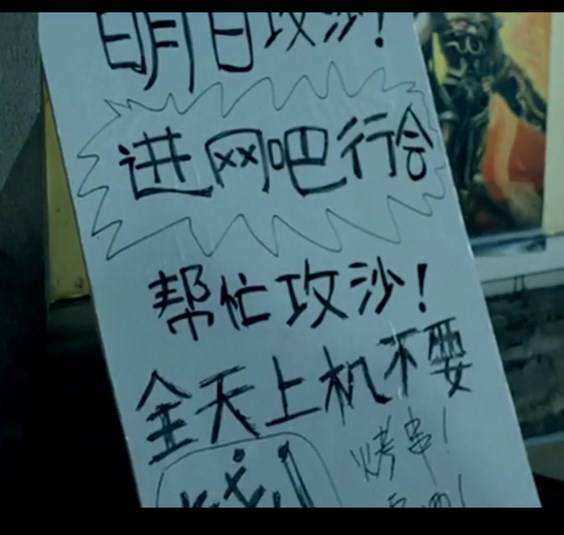 明日攻沙！
进网吧行会
帮忙攻沙！
全天上机不要
钱！
烤串！